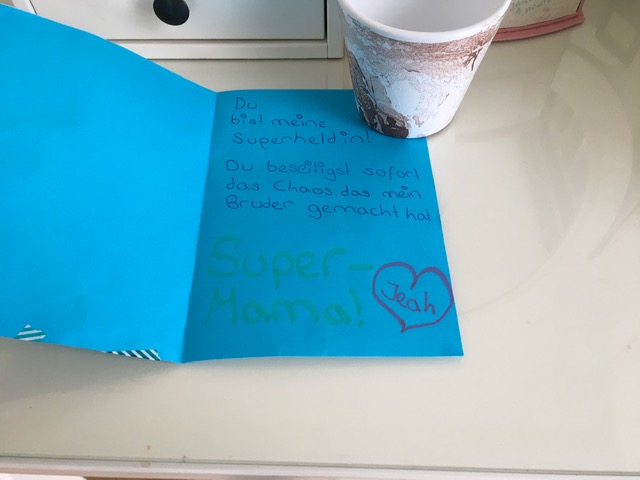 Du
bist meine
Superheldin!
Du beseitigst sofort
das Chaos, das mein
Bruder gemacht hat
Super-
Mama!
Jeah